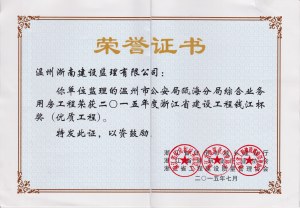 荣誉证书
温州浙南建设监理有限公司：
你单位监理的温州市公安局瓯海分局综合业务
用房工程荣获二〇一五年度浙江省建设工程钱江杯
奖（优质工程）。
特发此证，以资鼓励。
二〇一五年七月